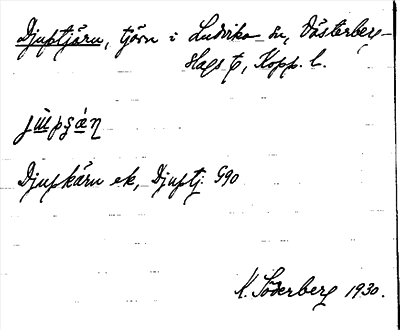 Djuptjärn, tjärn i Ludvika sn, Västerbergs-
slags t, Kopp. l.
Djupkärn ek, Djuptj: G90
K. Söderberg 1930.